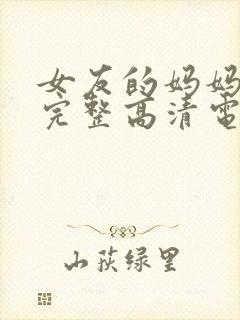 女友的妈妈
完整高清電
山荻绿里